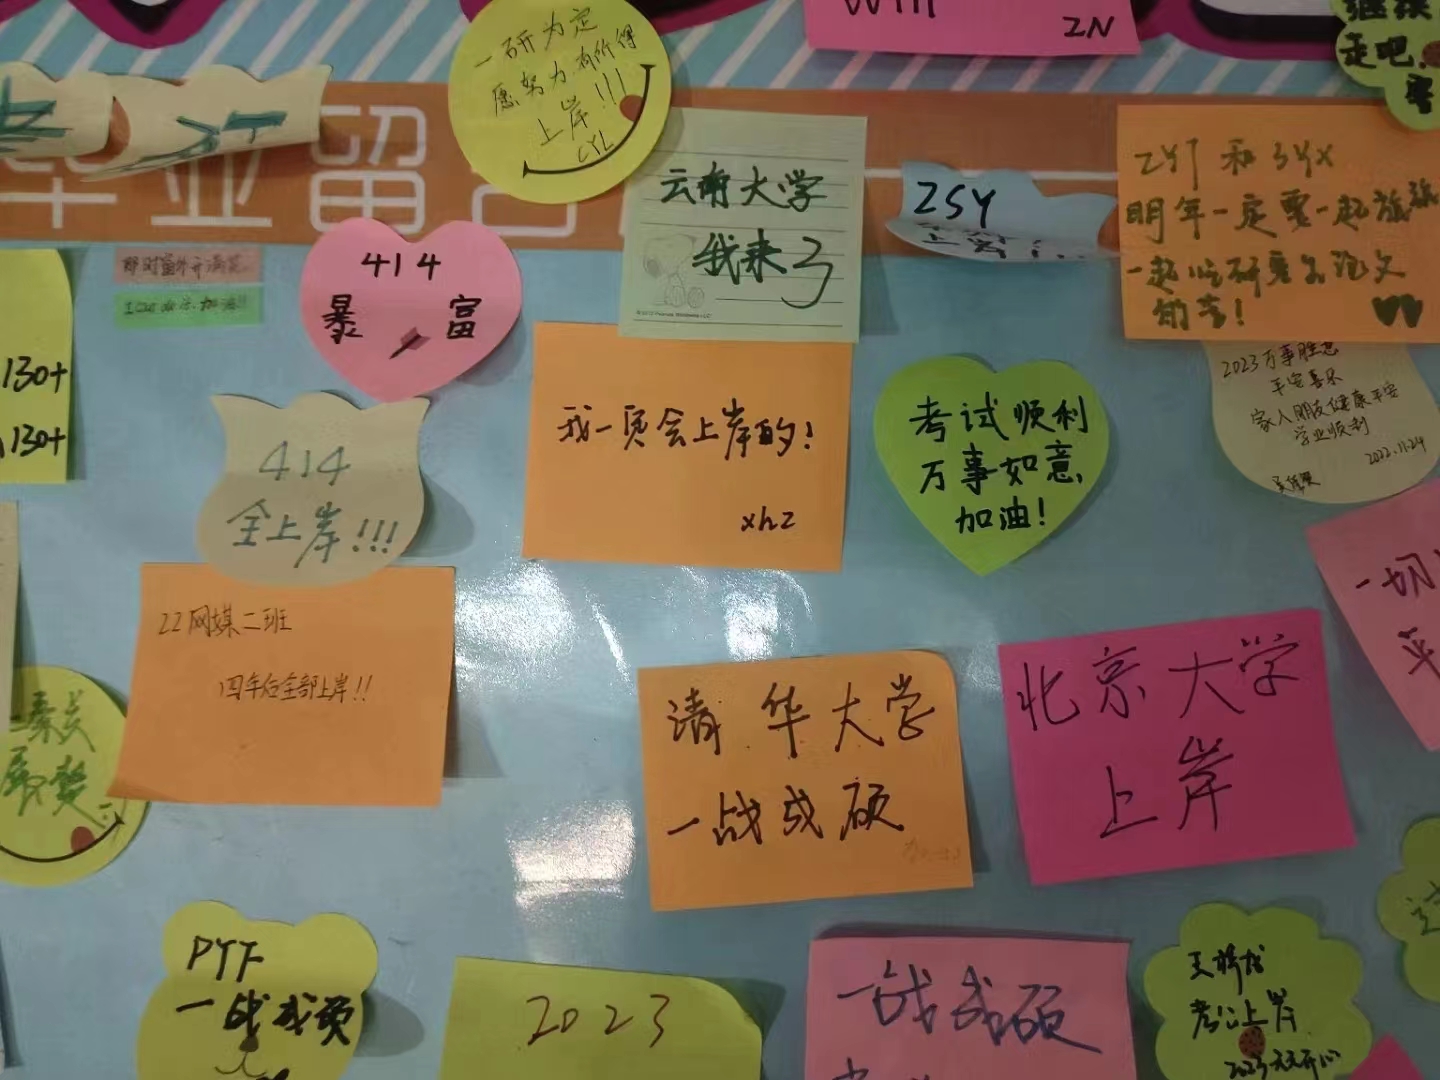 will
ZN
继续
走吧,
一研为定
愿努力有所得
上岸!!!
CYL
毕业留言
云南大学
我来了
ZSY
上岸!!!
ZYT 和 SYX
明年一定要一起旅游
一起吃研究生论文
的苦!
414
暴富
130+
130+
414
全上岸!!!
我一定会上岸的!
xhz
考试顺利
万事如意,
加油!
2023万事胜意
平安喜乐
家人朋友健康平安
学业顺利
2022.11.24
22网媒二班
四年后全部上岸!!
清华大学
一战成硕
北京大学
上岸
一切
平
PYF
一战成硕
2023
一战成硕
考公上岸
2023天天开心